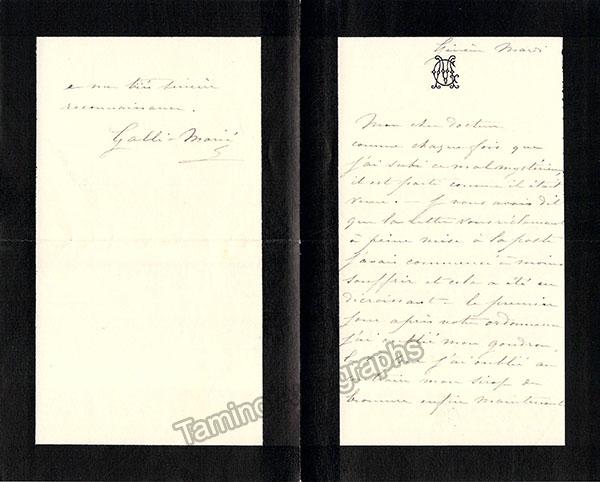 Mardi
Mon cher docteur
comme chaque fois que
j'ai subi ce mal mystérieux
il est parti comme il était
venu. — Je vous avais dit
que la lettre vous réclamant
à peine mise à la poste
j'avais commencé à moins
souffrir et cela a été en
décroissant — le premier
jour après votre ordonnance
j'ai oublié mon goudron,
j'ai oublié
mon sirop de
bromure enfin maintenant
e ma très sincère
reconnaissance.
Galli-Marié
Tamino Autographs